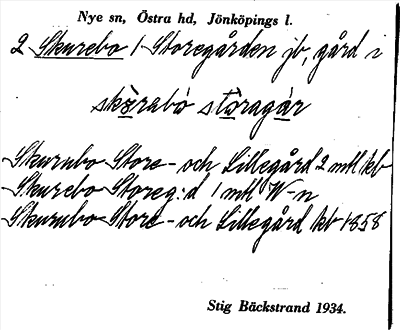 Nye sn, Östra hd, Jönköpings l.
2 Skurebo 1 Storegården jb, gård i
skùrabó stòragár
Skurubo Store- och Lillegård 2 mtl kb
Skurebo Storeg:d 1 mtl W-n
Skurubo Store- och Lillegård kb 1858
Stig Bäckstrand 1934.